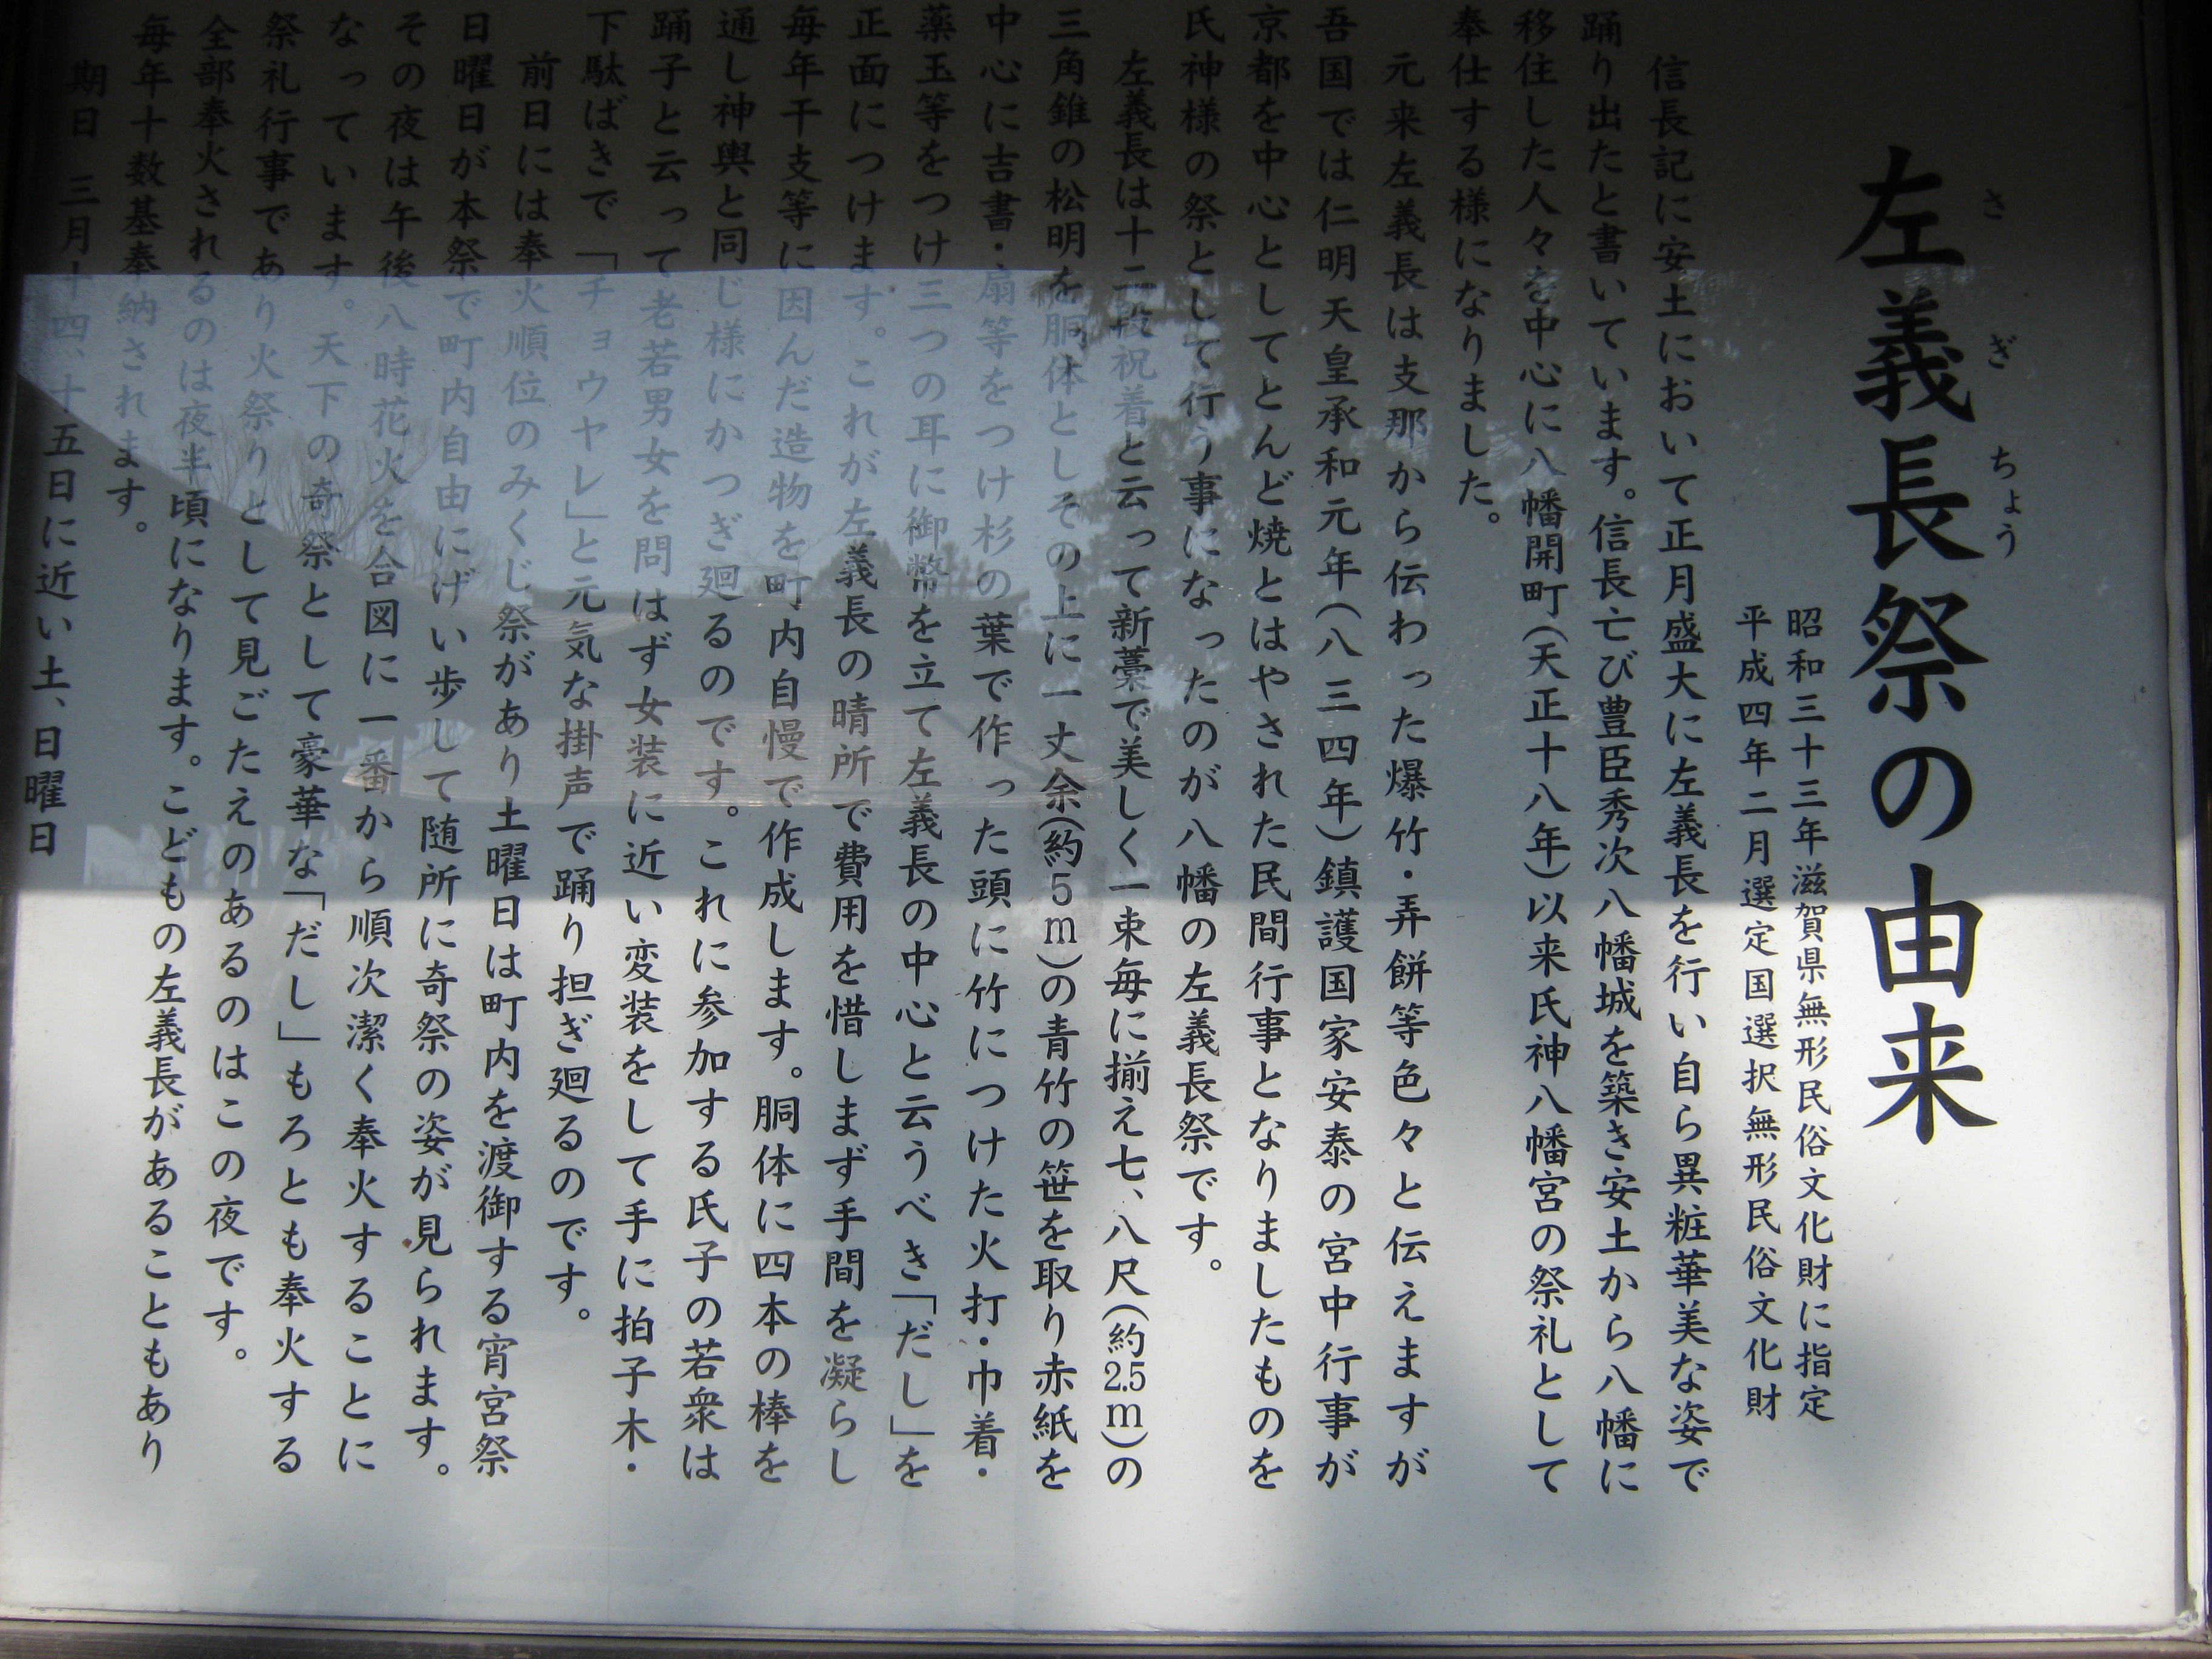 左義長祭の由来
さぎちょう
昭和三十三年滋賀県無形民俗文化財に指定
平成四年二月選定国選択無形民俗文化財
信長記に安土において正月盛大に左義長を行い自ら異粧華美な姿で
踊り出たと書いています。信長亡び豊臣秀次八幡城を築き安土から八幡に
移住した人々を中心に八幡開町(天正十八年)以来氏神八幡宮の祭礼として
奉仕する様になりました。
元来左義長は支那から伝わった爆竹・弄餅等色々と伝えますが
吾国では仁明天皇承和元年(八三四年)鎮護国家安泰の宮中行事が
京都を中心としてとんど焼とはやされた民間行事となりましたものを
氏神様の祭として行う事になったのが八幡の左義長祭です。
左義長は十二段祝着と云って新藁で美しく一束毎に揃え七、八尺(約2.5m)の
三角錐の松明を胴体としその上に一丈余(約5m)の青竹の笹を取り赤紙を
中心に吉書・扇等をつけ杉の葉で作った頭に竹につけた火打・巾着・
薬玉等をつけ三つの耳に御幣を立て左義長の中心と云うべき「だし」を
正面につけます。これが左義長の晴所で費用を惜しまず手間を凝らし
毎年干支等に因んだ造物を町内自慢で作成します。胴体に四本の棒を
通し神輿と同じ様にかつぎ廻るのです。これに参加する氏子の若衆は
踊子と云って老若男女を問はず女装に近い変装をして手に拍子木・
下駄ばきで「チョウヤレ」と元気な掛声で踊り担ぎ廻るのです。
前日には奉火順位のみくじ祭があり土曜日は町内を渡御する宵宮祭
日曜日が本祭で町内自由にげい歩して随所に奇祭の姿が見られます。
その夜は午後八時花火を合図に一番から順次潔く奉火することに
なっています。天下の奇祭として豪華な「だし」もろとも奉火する
祭礼行事であり火祭りとして見ごたえのあるのはこの夜です。
全部奉火されるのは夜半頃になります。こどもの左義長があることもあり
毎年十数基奉納されます。
期日 三月十四、十五日に近い土、日曜日